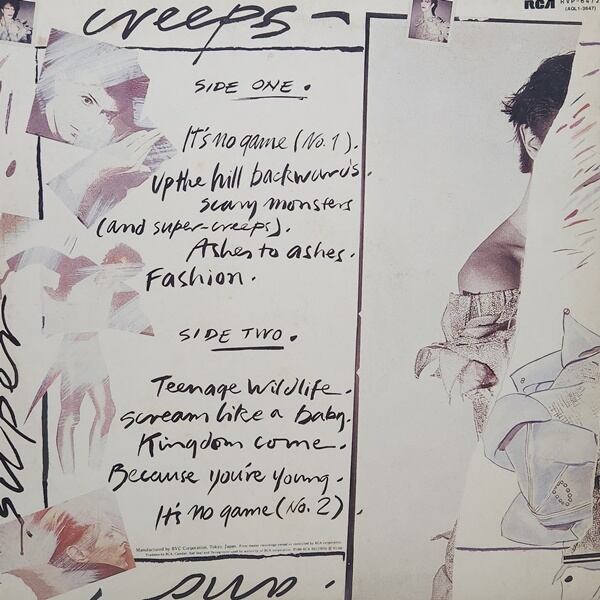 creeps -
RCA RVP-6472
(AQL1-3647)
SIDE ONE.
It's no game (No. 1).
Up the hill backwards.
scary monsters
(and super-creeps).
Ashes to ashes.
Fashion.
SIDE TWO.
Teenage Wildlife.
scream like a baby.
Kingdom come.
Because you're young.
It's no game (No. 2).
super
Manufactured by RVC Corporation, Tokyo, Japan.
and